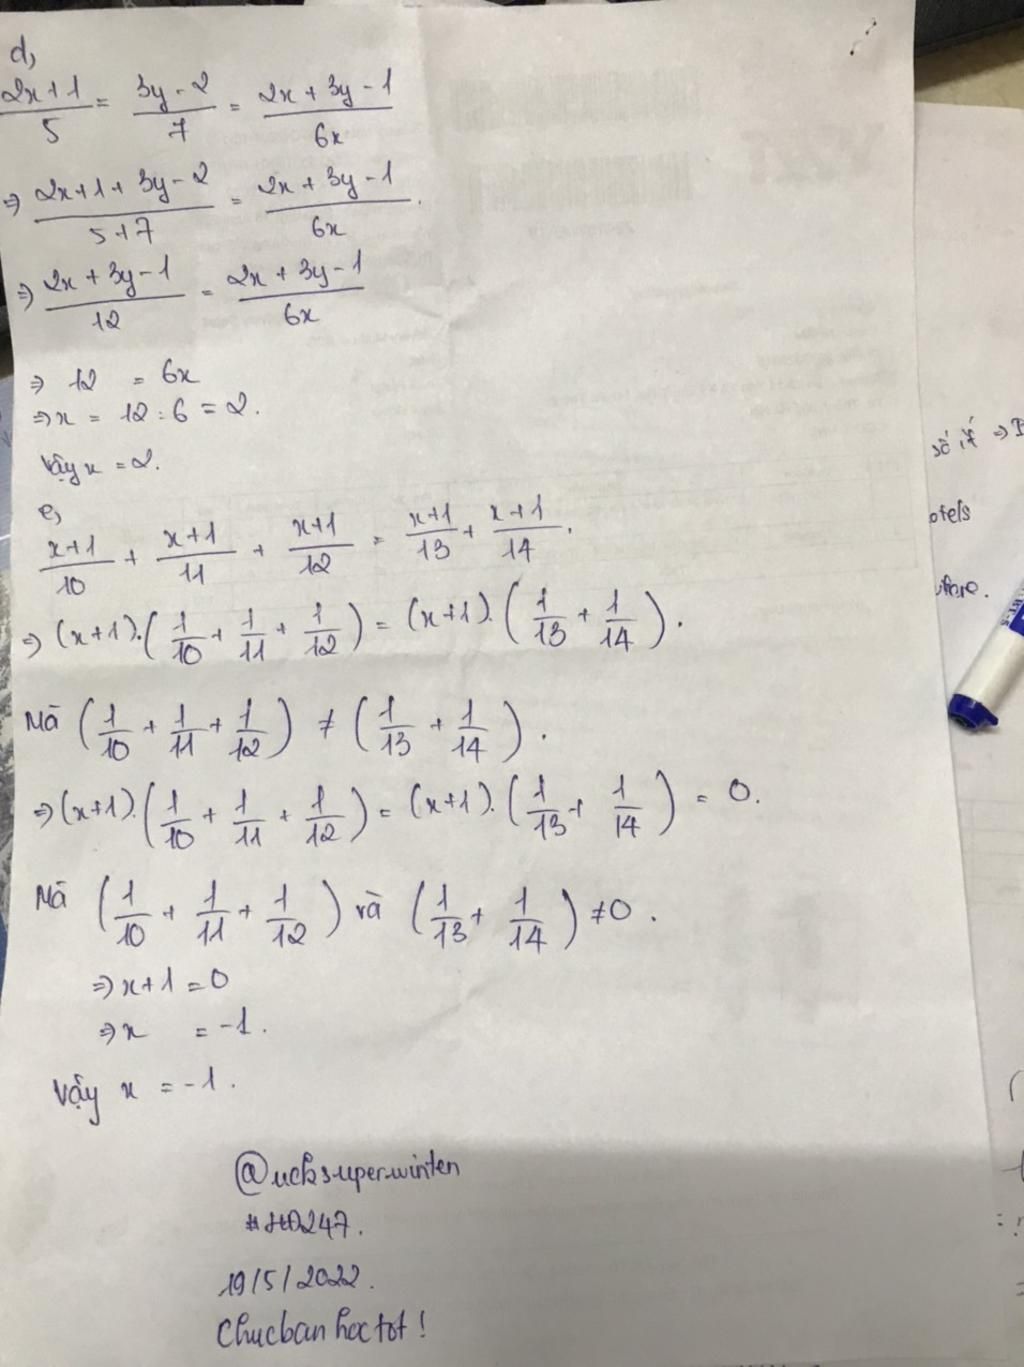 d,
2x+1/5 = 3y-2/7 = 2x+3y-1/6x
⇒ 2x+1+3y-2/5+7 = 2x+3y-1/6x.
⇒ 2x+3y-1/12 = 2x+3y-1/6x
⇒ 12 = 6x
⇒ x = 12:6 = 2.
Vậy x = 2.
e,
x+1/10 + x+1/11 + x+1/12 = x+1/13 + x+1/14.
⇒ (x+1).(1/10 + 1/11 + 1/12) = (x+1).(1/13 + 1/14).
Mà (1/10 + 1/11 + 1/12) ≠ (1/13 + 1/14).
⇒ (x+1).(1/10 + 1/11 + 1/12) = (x+1).(1/13 + 1/14) = 0.
Mà (1/10 + 1/11 + 1/12) và (1/13 + 1/14) ≠ 0.
⇒ x+1 = 0
⇒ x = -1.
Vậy x = -1.
19/5/2022.
Chucbanhoctot!